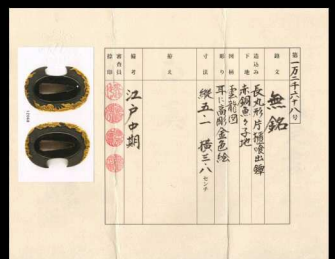 第一万二千六十八号
銘文
無銘
造込み 長丸形片櫃喰出鐔
下地 赤銅魚々子地
図柄 雲龍図
彫り 耳に高彫金色絵
寸法 縦五・一 横三・八 センチ
附
備考 江戸中期
審査員